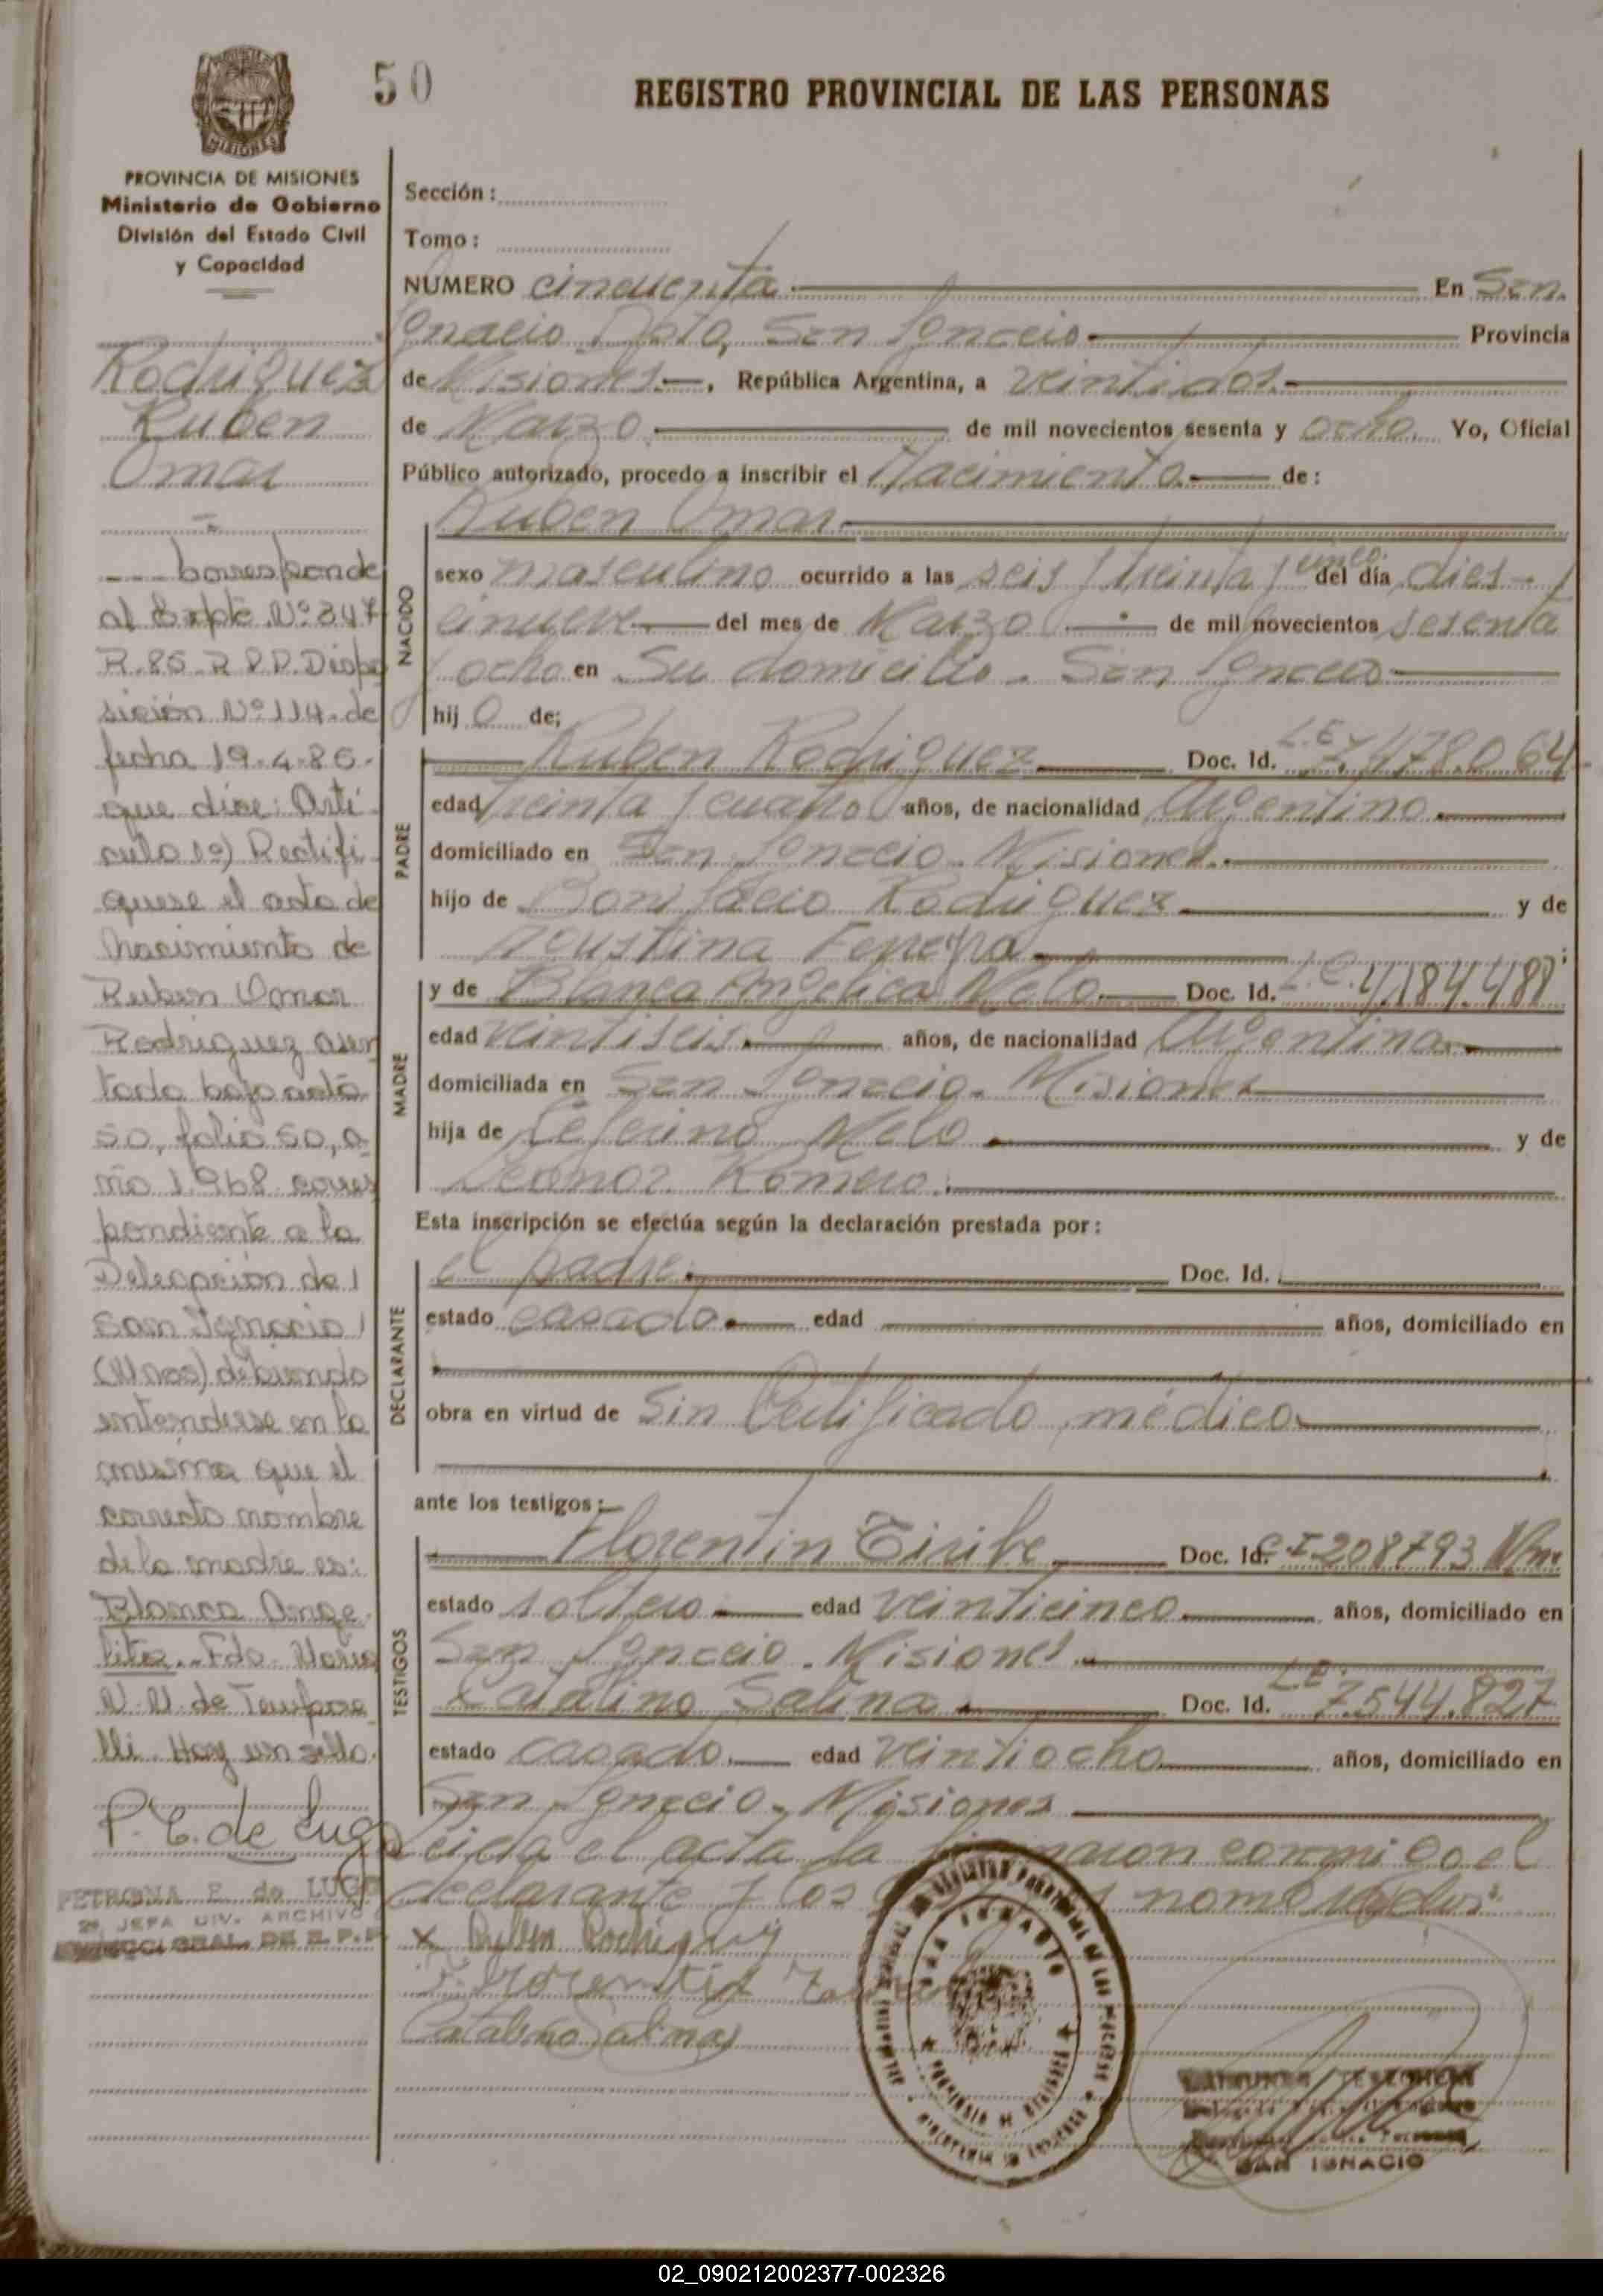 50
REGISTRO PROVINCIAL DE LAS PERSONAS
MISIONES
PROVINCIA DE MISIONES
Ministerio de Gobierno
División del Estado Civil
y Capacidad
Rodriguez
Ruben
Omar
Corresponde
al Expte. Nº 347
R. 85. R.P.P. Dispo
sición Nº 114. de
fecha 19.4.85.
que dice: Artí
culo 1º) Rectifi
quese el acta de
Nacimiento de
Ruben Omar
Rodriguez asen
tada bajo acta
50, folio 50, a
ño 1.968 corres
pondiente a la
Delegación de
San Ignacio
(Mnes) debiendo
entenderse en la
misma que el
correcto nombre
de la madre es:
Blanca Ange
lita.. Fdo. Maria
de
lli. Hay un sello.
P. E. de Lugo
PETRONA E. de LUGO
2ª JEFA DIV. ARCHIVO
GRAL. DE R. P. P.
Sección:
Tomo:
NUMERO cincuenta En San
Ignacio Dpto, San Ignacio Provincia
de Misiones, República Argentina, a veintidos
de Marzo de mil novecientos sesenta y ocho. Yo, Oficial
Público autorizado, procedo a inscribir el Nacimiento de:
Ruben Omar
NACIDO
sexo masculino ocurrido a las seis y treinta y cinco del día dies y
cinueve del mes de Marzo de mil novecientos sesenta
y ocho en Su domicilio. San Ignacio
hij o de;
PADRE
Ruben Rodriguez Doc. Id. L.E. 7.478.064
edad treinta y cuatro años, de nacionalidad Argentino
domiciliado en San Ignacio. Misiones.
hijo de Bonifacio Rodriguez y de
Agustina Ferreyra
MADRE
y de Blanca Angelica Melo Doc. Id. L.C. 4.184.488
edad veintiseis años, de nacionalidad Argentina
domiciliada en San Ignacio. Misiones
hija de Ceferino Melo y de
Leonor Romero.
Esta inscripción se efectúa según la declaración prestada por:
DECLARANTE
el padre Doc. Id.
estado casado edad años, domiciliado en
obra en virtud de Sin Certificado médico
ante los testigos:
TESTIGOS
Florentin Doc. Id. C.I 208793
estado soltero edad veinticinco años, domiciliado en
San Ignacio. Misiones
Catalino Salina Doc. Id. L.E. 7.544.827
estado casado. edad veintiocho años, domiciliado en
San Ignacio. Misiones
Leida el acta la conmigo el
declarante y los nombrados
x Ruben Rodriguez
Florentin
Catalino Salinas
SAN IGNACIO
PROVINCIA DE MISIONES
SAN IGNACIO
02_090212002377-002326